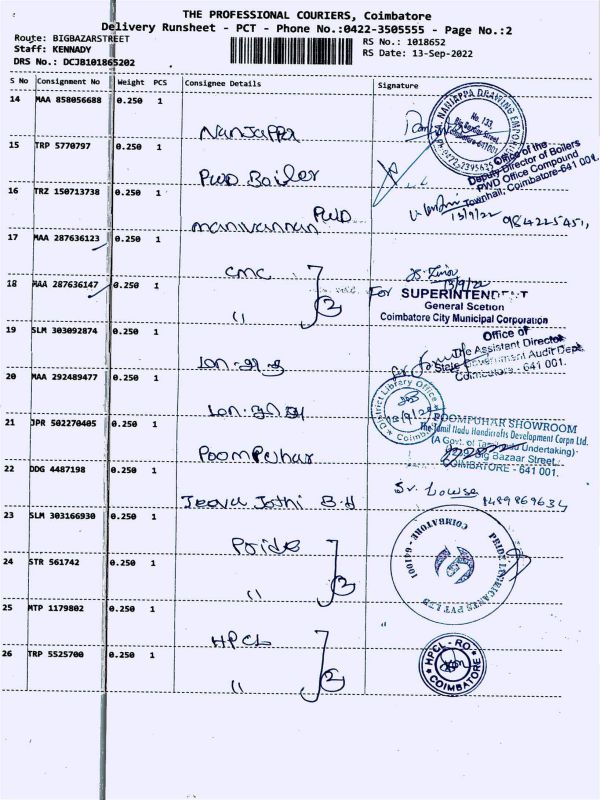 THE PROFESSIONAL COURIERS, Coimbatore
Delivery Runsheet - PCT - Phone No.:0422-3505555 - Page No.:2
Route: BIGBAZARSTREET
Staff: KENNADY
DRS No.: DCJB101865202
RS No.: 1018652
RS Date: 13-Sep-2022
S No Consignment No Weight PCS Consignee Details Signature
14 MAA 858056688 0.250 1
Nanjappa
NANJAPPA DRAWING EMPORIUM
No. 133,
Big Bazaar Street,
Coimbatore-641 001.
15 TRP 5770797 0.250 1
PWD Boiler
Office of the
Deputy Director of Boilers
PWD Office Compound
Townhall, Coimbatore-641 001.
16 TRZ 150713738 0.250 1
manivannan PWD
13/9/22
17 MAA 287636123 0.250 1
CMC
13/9/22
18 MAA 287636147 0.250 1
"
2
For SUPERINTENDENT
General Scetion
Coimbatore City Municipal Corporation
19 SLM 303092874 0.250 1
Office of
The Assistant Director
State Government Audit Dept.
Coimbatore - 641 001.
20 MAA 292489477 0.250 1
District Library Office
Coimbatore
21 JPR 502270405 0.250 1
Poompuhar
POOMPUHAR SHOWROOM
The Tamil Nadu Handicrafts Development Corpn Ltd.
(A Govt. of Tamilnadu Undertaking)
Big Bazaar Street,
COIMBATORE - 641 001.
22 DDG 4487198 0.250 1
Jeeva Jothi B.H
23 SLM 303166930 0.250 1
Pride
24 STR 561742 0.250 1
"
2
PRIDE LUBRICANTS PVT LTD
COIMBATORE - 641001
25 MTP 1179802 0.250 1
HPCL
26 TRP 5525700 0.250 1
"
2
HPCL - RO
COIMBATORE